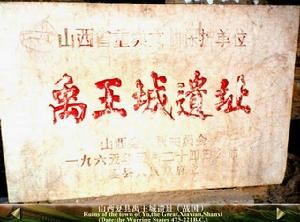 山西省重点文物保护单位
禹王城遺址
山西省
一九六五年五月二十四日
夏县人民
山西夏县禹王城遗址（战国）
Ruins of the town of Yu,the Great,Xiaxian,Shanxi
(Date:the Warring States 475-221B.C.)